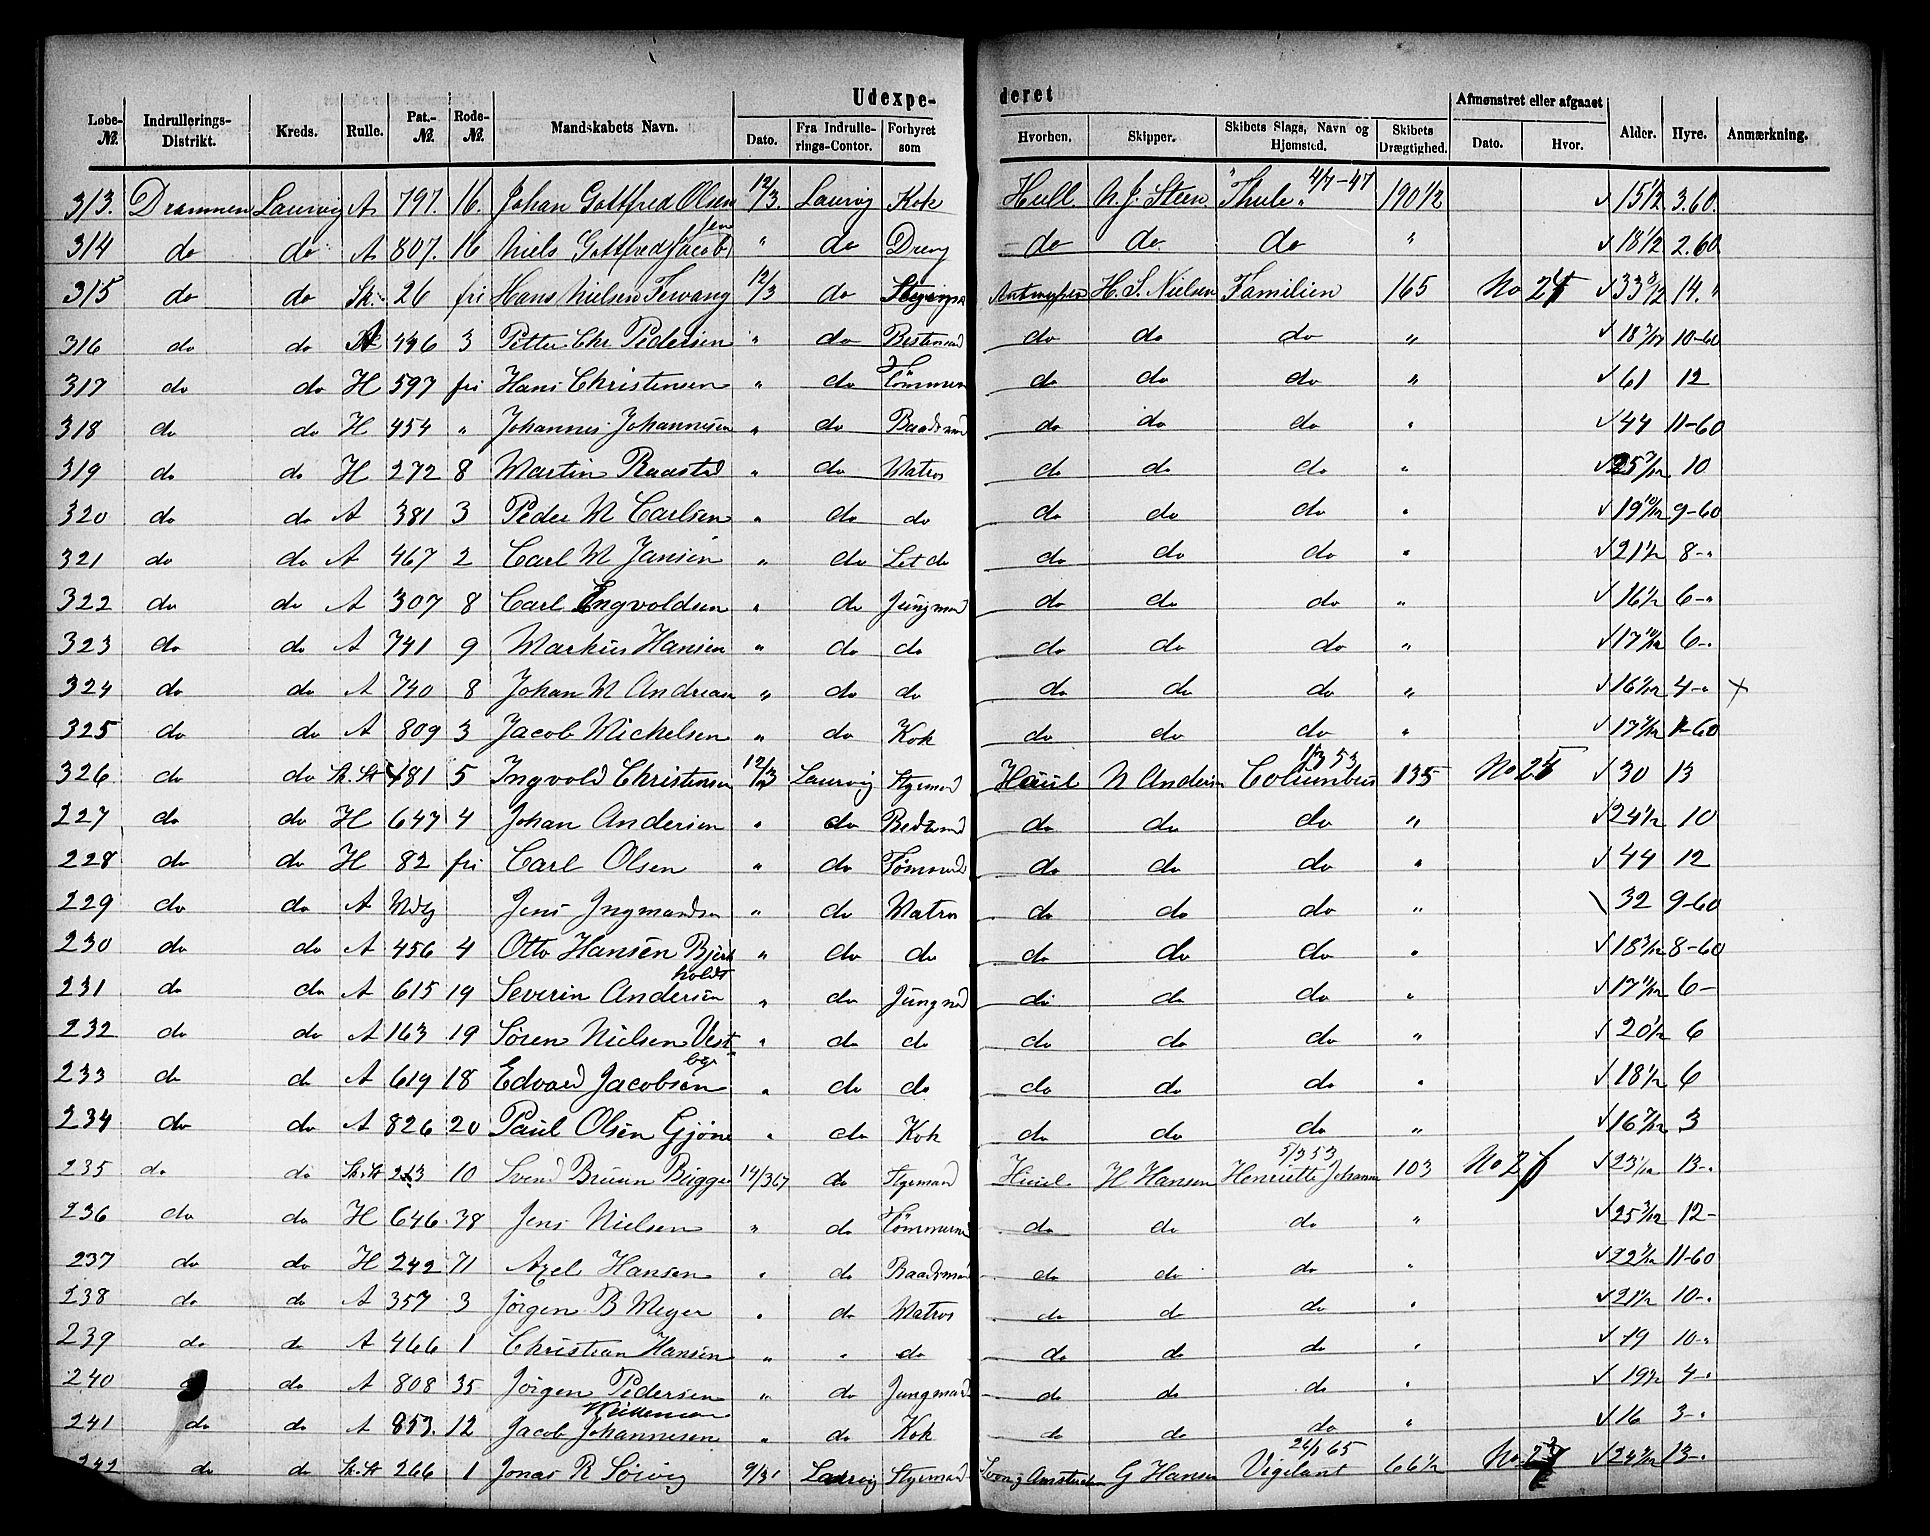 Udexpederet
Løbe-№. Indrullerings-Distrikt. Kreds. Rulle. Pat.-№. Rode-№. Mandskabets Navn. Dato. Fra Indrullerings-Contor. Forhyret som Hvorhen, Skipper. Skibets Slags, Navn og Hjemsted. Skibets Drægtighed. Afmønstret eller afgaaet Dato. Hvor. Alder. Hyre. Anmærkning.
313. Drammen Laurvig A 797. 16. Johan Gottfred Olsen 12/3. Laurvig Kok Hull. N. J. Steen. "Thule" 4/7-47 190 1/2 √ 15 1/2 3.60.
314 do do A 807. 16 Niels Gottfred Jacobsen " do Dreng do do do " √ 18 1/2 2.60
315 do do Sk. 26 fri Hans Nielsen Tewang 12/3 do Antwerpen H. S. Nielsen Familien 165 No 24 √ 33 14.
316 do do 446 3 Petter Chr Pedersen " do Bestmand do do do " √ 18 10-60
317 do do H 597 fri Hans Christensen " do Tömmerm do do do " √ 61 12
318 do do H 454 " Johannes Johannesen " do Baadsmand do do do " √ 44 11-60
319 do do H 272 8 Martin Raastad " do Matros do do do " √ 25 10
320 do do A 381 3 Peder M Carlsen " do do do do do " √ 19 10/12 9-60
321 do do A 467 2 Carl M Jansen " do Let do do do do " √ 21 1/2 8-"
322 do do A 307 8 Carl Engvoldsen " do Jungmand do do do " √ 16 1/2 6-"
323 do do A 741 9 Markus Hansen " do do do do do " √ 17 10/12 6-"
324 do do A 740 8 Johan M Andreasen " do do do do do " √ 16 4-" ×
325 do do A 809 3 Jacob Mickelsen " do Kok do do do " √ 17 1-60
326 do do Sk. St 481 5 Ingvold Christensen 12/3 Laurvig Styrmand Hull N Andersen Columbus 1/3 53 135 No 25 √ 30 13
227 do do H 647 4 Johan Andersen " do Bedstmd do do do " √ 24 1/2 10
228 do do H 82 fri Carl Olsen " do Tømmermd do do do " √ 44 12
229 do do A Udg Jens Ingmandsen " do Matros do do do " \ 32 9-60
230 do do A 456 4 Otto Hansen Bjerkholdt " do do do do do " √ 18 3/12 8-60
231 do do A 615 19 Severin Andersen " do Jungmd do do do " √ 17 6-
232 do do A 163 19 Sören Nielsen Vestbye " do do do do do " √ 20 1/2 6
233 do do A 619 18 Edvard Jacobsen " do do do do do " √ 18 1/2 6
234 do do A 826 20 Paul Olsen Gjöne " do Kok do do do " √ 16 3
235 do do Sk. St 213 10 Svend Bruun Bugge 14/3 67 do Styrmand Huul H Hansen Henriette Johanne 5/3 53 103 No 26 √ 23 1/12 13-"
236 do do H 646 38 Jens Nielsen " do Tömmermd do do do " √ 25 3/12 12-
237 do do H 242 71 Axel Hansen " do Baadsmand do do do " √ 22 11-60
238 do do A 357 3 Jörgen B Meyer " do Matros do do do " √ 21 1/2 10-"
239 do do A 466 1 Christian Hansen " " do do do do " √ 19 10-"
240 do do A 808 35 Jörgen Pedersen " do Jungmand do do do " √ 19 1/2 4-"
241 do do A 853. 12 Jacob Johannesen " do Kok do do do " √ 16 3-"
242 do do Sk. St 266 1 Jonas R Sörvig 9/3 Laurvig Styrmand Amsterdam G Hansen Vigilant 26/1 65 66 1/2 No 27 √ 24 13-"